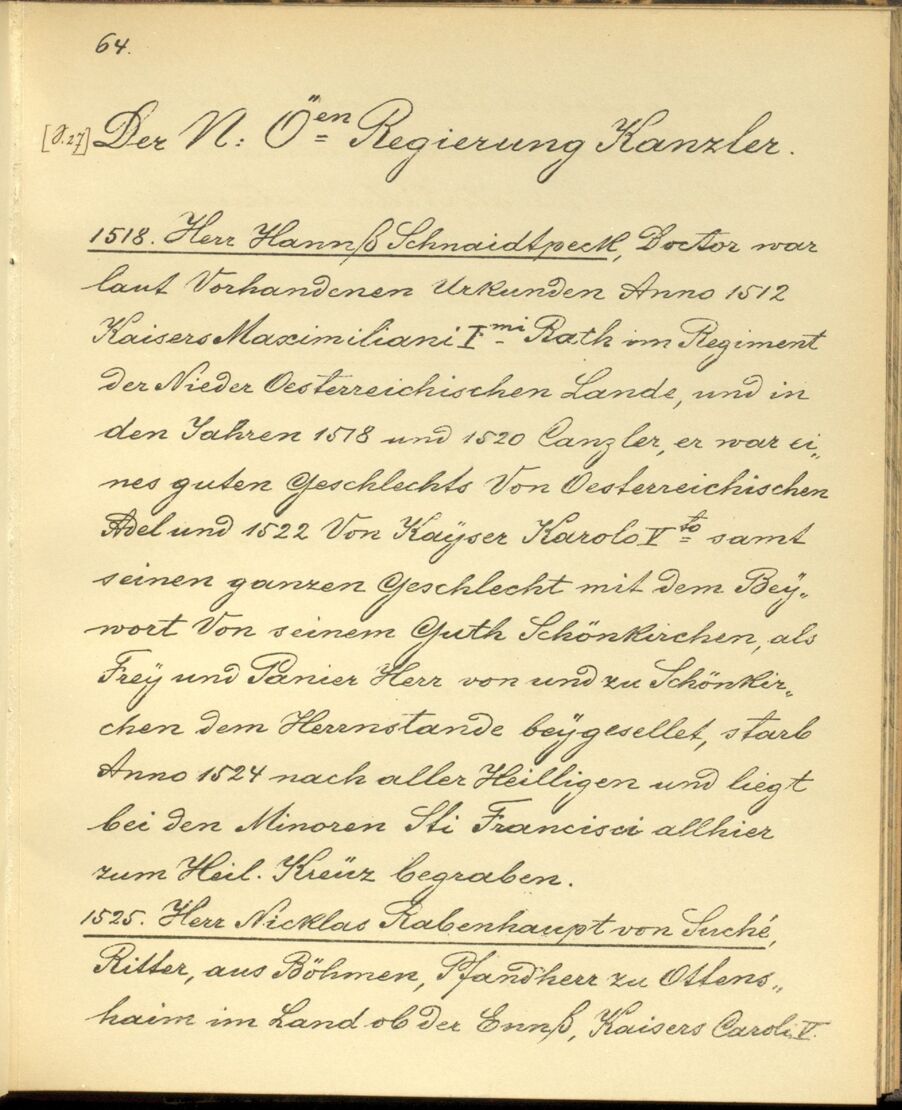 64.
[S. 27] Der N: Ö<sup>en</sup> Regierung Kanzler.
1518. Herr Hannß Schnaidtpeck, Doctor war
laut Vorhandenen Urkunden Anno 1512
Kaisers Maximiliani I<sup>mi</sup> Rath im Regiment
der Nieder Oesterreichischen Lande, und in
den Jahren 1518 und 1520 Canzler, er war ei„
nes guten Geschlechts Von Oesterreichischen
Adel und 1522 Von Kaÿser Karolo V<sup>to</sup> samt
seinen ganzen Geschlecht mit dem Beÿ„
wort Von seinem Guth Schönkirchen, als
Freÿ und Panier Herr von und zu Schönkir„
chen dem Herrnstande beÿgesellet, starb
Anno 1524 nach aller Heilligen und liegt
bei den Minoren Sti Francisci allhier
zum Heil. Kreüz begraben.
1525. Herr Nicklas Rabenhaupt von Suché,
Ritter, aus Böhmen, Pfandherr zu Ottens„
haim im Land ob der Ennß, Kaisers Caroli V.